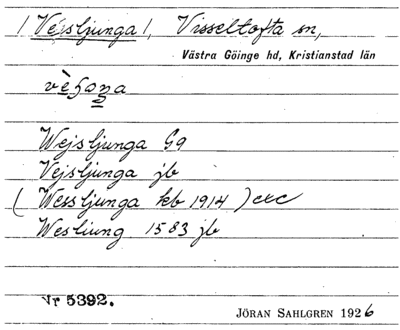 / Vejsljunga /, Visseltofta sn,
Västra Göinge hd, Kristianstad län
Wejsljunga G9
Vejsljunga jb
( Wessljunga kb 1914 ) exc
Wesliung 1583 jb
Nr 5392.
JÖRAN SAHLGREN 1926